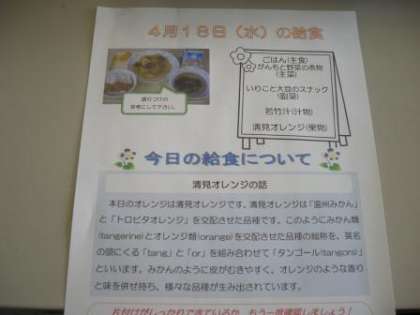 4月18日(水)の給食
ごはん(主食)
がんもと野菜の煮物
(主菜)
いりこと大豆のスナック
(副菜)
若竹汁(汁物)
清見オレンジ(果物)
盛り付けの
参考にして下さい。
今日の給食について
清見オレンジの話
本日のオレンジは清見オレンジです。清見オレンジは「温州みかん」
と「トロビタオレンジ」を交配させた品種です。このようにみかん類
(tangerine)とオレンジ類(orange)を交配させた品種の総称を、英名
の頭にくる「tang」と「or」を組み合わせて「タンゴール(tangors)」
といいます。みかんのように皮がむきやすく、オレンジのような香り
と味を併せ持ち、様々な品種が生み出されています。
片付けがしっかりできているか、もう一度確認しましょう!